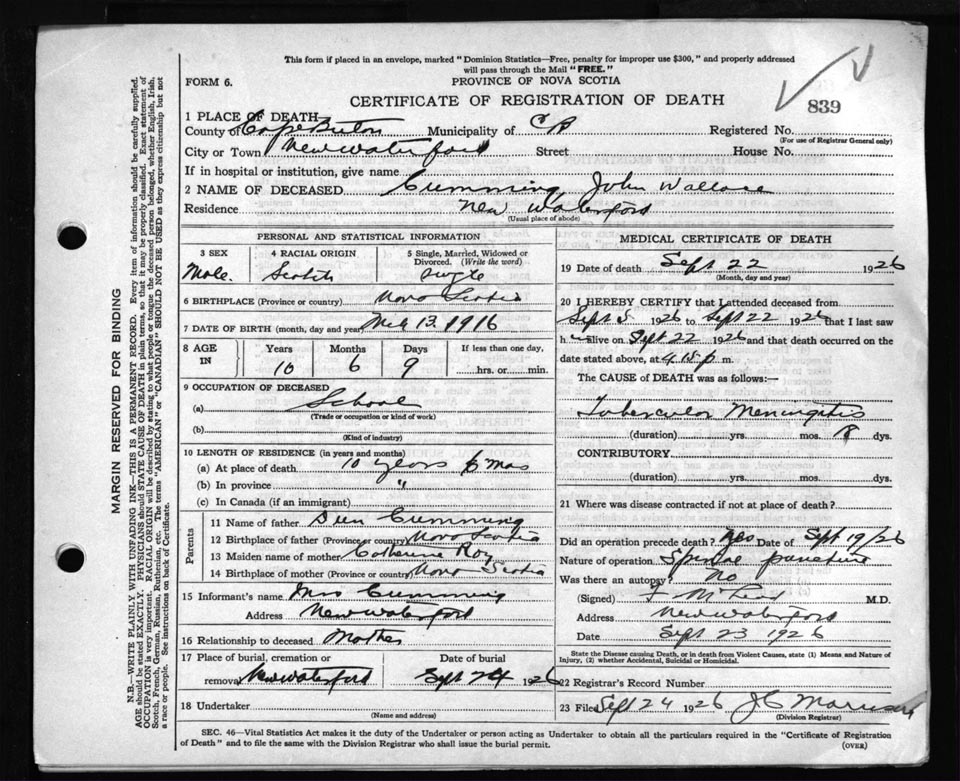 This form if placed in an envelope, marked "Dominion Statistics—Free, penalty for improper use $300," and properly addressed
will pass through the Mail "FREE."
FORM 6.
PROVINCE OF NOVA SCOTIA
CERTIFICATE OF REGISTRATION OF DEATH
839
1 PLACE OF DEATH
County of Cape Breton Municipality of CB Registered No.
(For use of Registrar General only)
City or Town New Waterford Street House No.
If in hospital or institution, give name
2 NAME OF DECEASED Cumming, John Wallace
Residence New Waterford
(Usual place of abode)
PERSONAL AND STATISTICAL INFORMATION
3 SEX 4 RACIAL ORIGIN 5 Single, Married, Widowed or Divorced. (Write the word)
Male Scotch Single
6 BIRTHPLACE (Province or country) Nova Scotia
7 DATE OF BIRTH (month, day and year) 13 1916
8 AGE IN Years Months Days If less than one day,
10 6 9 hrs. or min.
9 OCCUPATION OF DECEASED
(a) School
(Trade or occupation or kind of work)
(b)
(Kind of industry)
10 LENGTH OF RESIDENCE (in years and months)
(a) At place of death 10 years 6 mos
(b) In province "
(c) In Canada (if an immigrant)
Parents
11 Name of father Cumming
12 Birthplace of father (Province or country) Nova Scotia
13 Maiden name of mother Catherine Roy
14 Birthplace of mother (Province or country) Nova Scotia
15 Informant's name Mrs Cumming
Address New Waterford
16 Relationship to deceased Mother
17 Place of burial, cremation or Date of burial
removal New Waterford Sept 24 1926
18 Undertaker
(Name and address)
MEDICAL CERTIFICATE OF DEATH
19 Date of death Sept 22 1926
(Month, day and year)
20 I HEREBY CERTIFY that I attended deceased from
Sept 5 1926 to Sept 22 1926 that I last saw
h alive on Sept 22 1926 and that death occurred on the
date stated above, at 4.15 p m.
The CAUSE of DEATH was as follows:—
Tubercular Meningitis
(duration) yrs. mos. dys.
CONTRIBUTORY
(duration) yrs. mos. dys.
21 Where was disease contracted if not at place of death?
Did an operation precede death? Yes Date of Sept 19/26
Nature of operation Spinal puncture
Was there an autopsy? No
(Signed) M.D.
Address New Waterford
Date Sept 23 1926
State the Disease causing Death, or in death from Violent Causes, state (1) Means and Nature of
Injury, (2) whether Accidental, Suicidal or Homicidal.
22 Registrar's Record Number
23 Filed Sept 24 1926 J C
(Division Registrar)
SEC. 46—Vital Statistics Act makes it the duty of the Undertaker or person acting as Undertaker to obtain all the particulars required in the "Certificate of Registration
of Death" and to file the same with the Division Registrar who shall issue the burial permit.
(OVER)
MARGIN RESERVED FOR BINDING
N.B.—WRITE PLAINLY WITH UNFADING INK—THIS IS A PERMANENT RECORD. Every item of information should be carefully supplied.
AGE should be stated EXACTLY. PHYSICIANS should STATE CAUSE OF DEATH in plain terms, so that it may be properly classified. Exact statement of
OCCUPATION is very important. RACIAL ORIGIN will be described by stating to what people or tongue the deceased person belonged, whether English, Irish,
Scotch, French, German, Russian, Ruthenian, etc. The terms "AMERICAN" or "CANADIAN" SHOULD NOT BE USED as they express citizenship but not
a race or people. See instructions on back of Certificate.